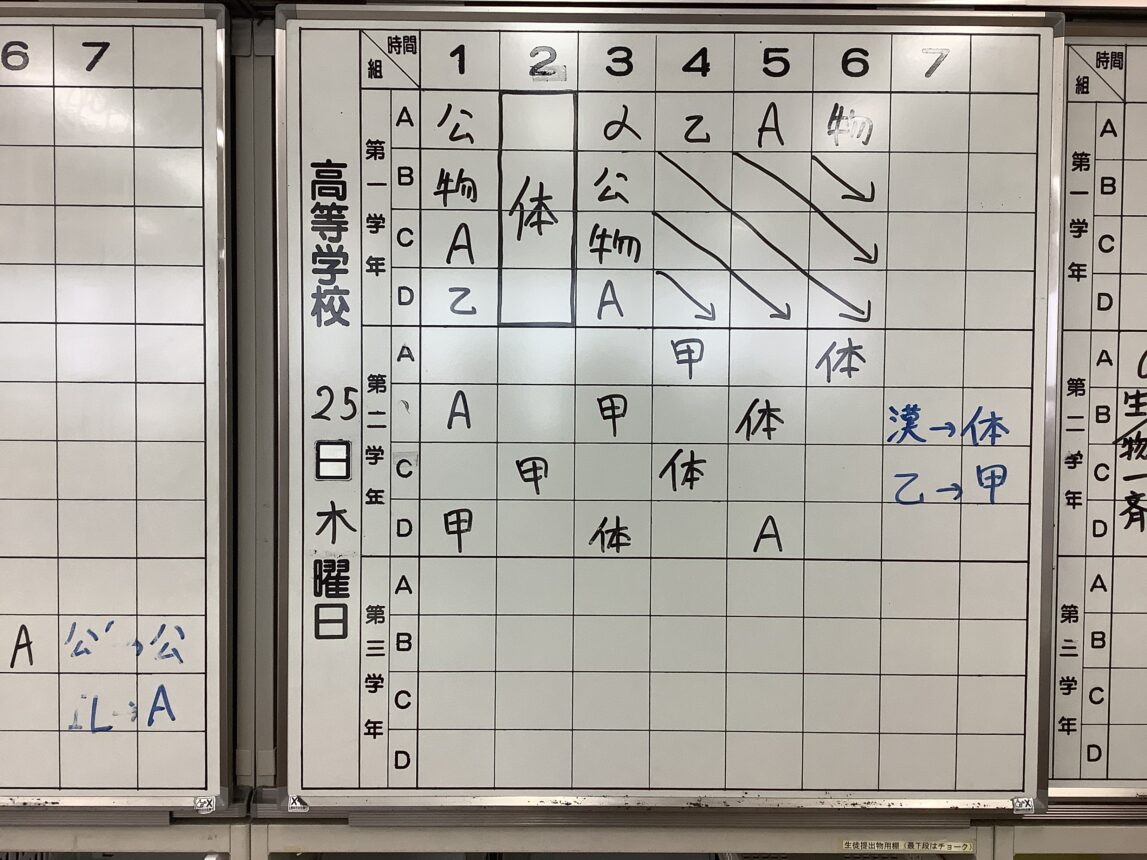 6 7
A 公´→公
A
高等学校
25
日
木
曜日
時間
組
1 2 3 4 5 6 7
第一学年
A 公 α 乙 A 物
B 物 体 公
C A 物
D 乙 A
第二学年
A 甲 体
B A 甲 体 漢→体
C 甲 体 乙→甲
D 甲 体 A
第三学年
A
B
C
D
時間
組
第一学年
A
B
C
D
第二学年
A
B 生
C 物一
D 斉
第三学年
A
B
C
D
生徒提出物用棚(最下段はチョーク)